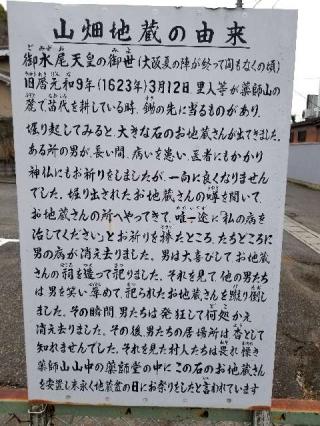 山畑地蔵の由来
御水尾天皇の御世(大阪夏の陣が終って間もなくの頃)
旧暦元和9年(1623年)3月12日里人等が薬師山の
麓で苗代を耕している時、鋤の先に当るものがあり、
堀り起してみると、大きな石のお地蔵さんが出てきました。
ある所の男が、長い間、病いを患い、医者にもかかり
神仏にもお祈りをしましたが、一向に良くなりません
でした。堀り出されたお地蔵さんの噂を聞いて、
お地蔵さんの所へやってきて、唯一途に「私の病を
治してください」とお祈りを捧たところ、たちどころに
男の病が消え去りました。男は大喜びしてお地蔵
さんの祠を造って祀りました。それを見て他の男たち
は男を笑い辱めて、祀られたお地蔵さんを蹴り倒し
ました。その瞬間男たちは発狂して何処かえ
消え去りました。その後、男たちの居場所は杳として
知れませんでした。それを見た村人たちは畏れ慄き
薬師山山中の薬師堂の中にこの石のお地蔵さん
を安置し末永く地蔵盆の日にお祭りをしたと言われています